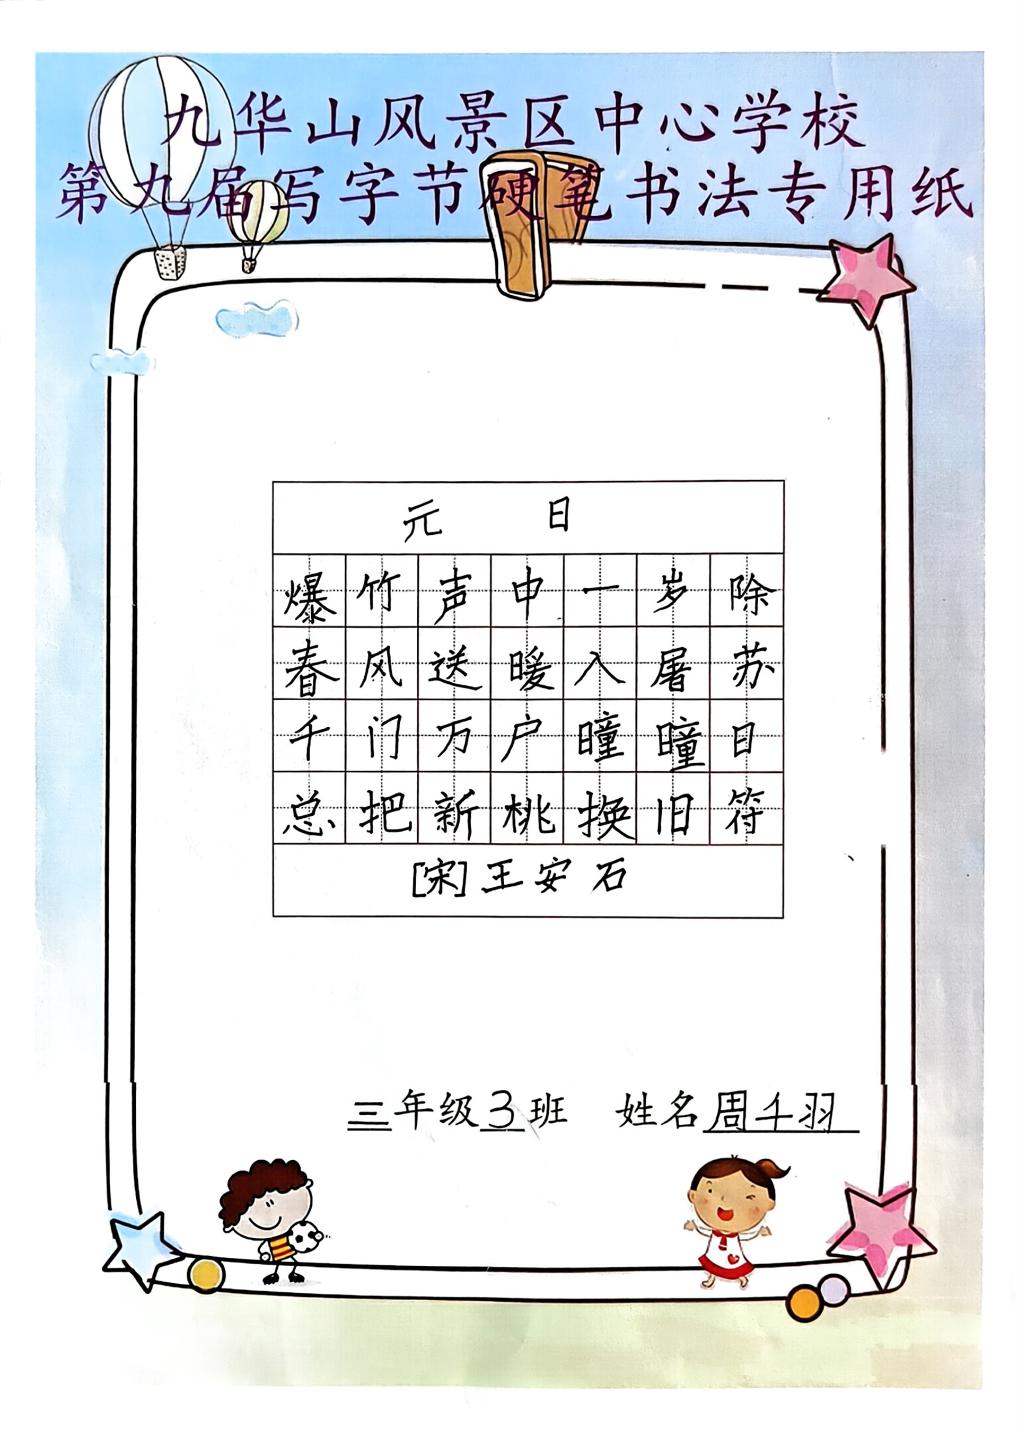 九华山风景区中心学校
第九届写字节硬笔书法专用纸
元 日
爆竹声中一岁除
春风送暖入屠苏
千门万户曈曈日
总把新桃换旧符
[宋]王安石
三年级3班 姓名周千羽